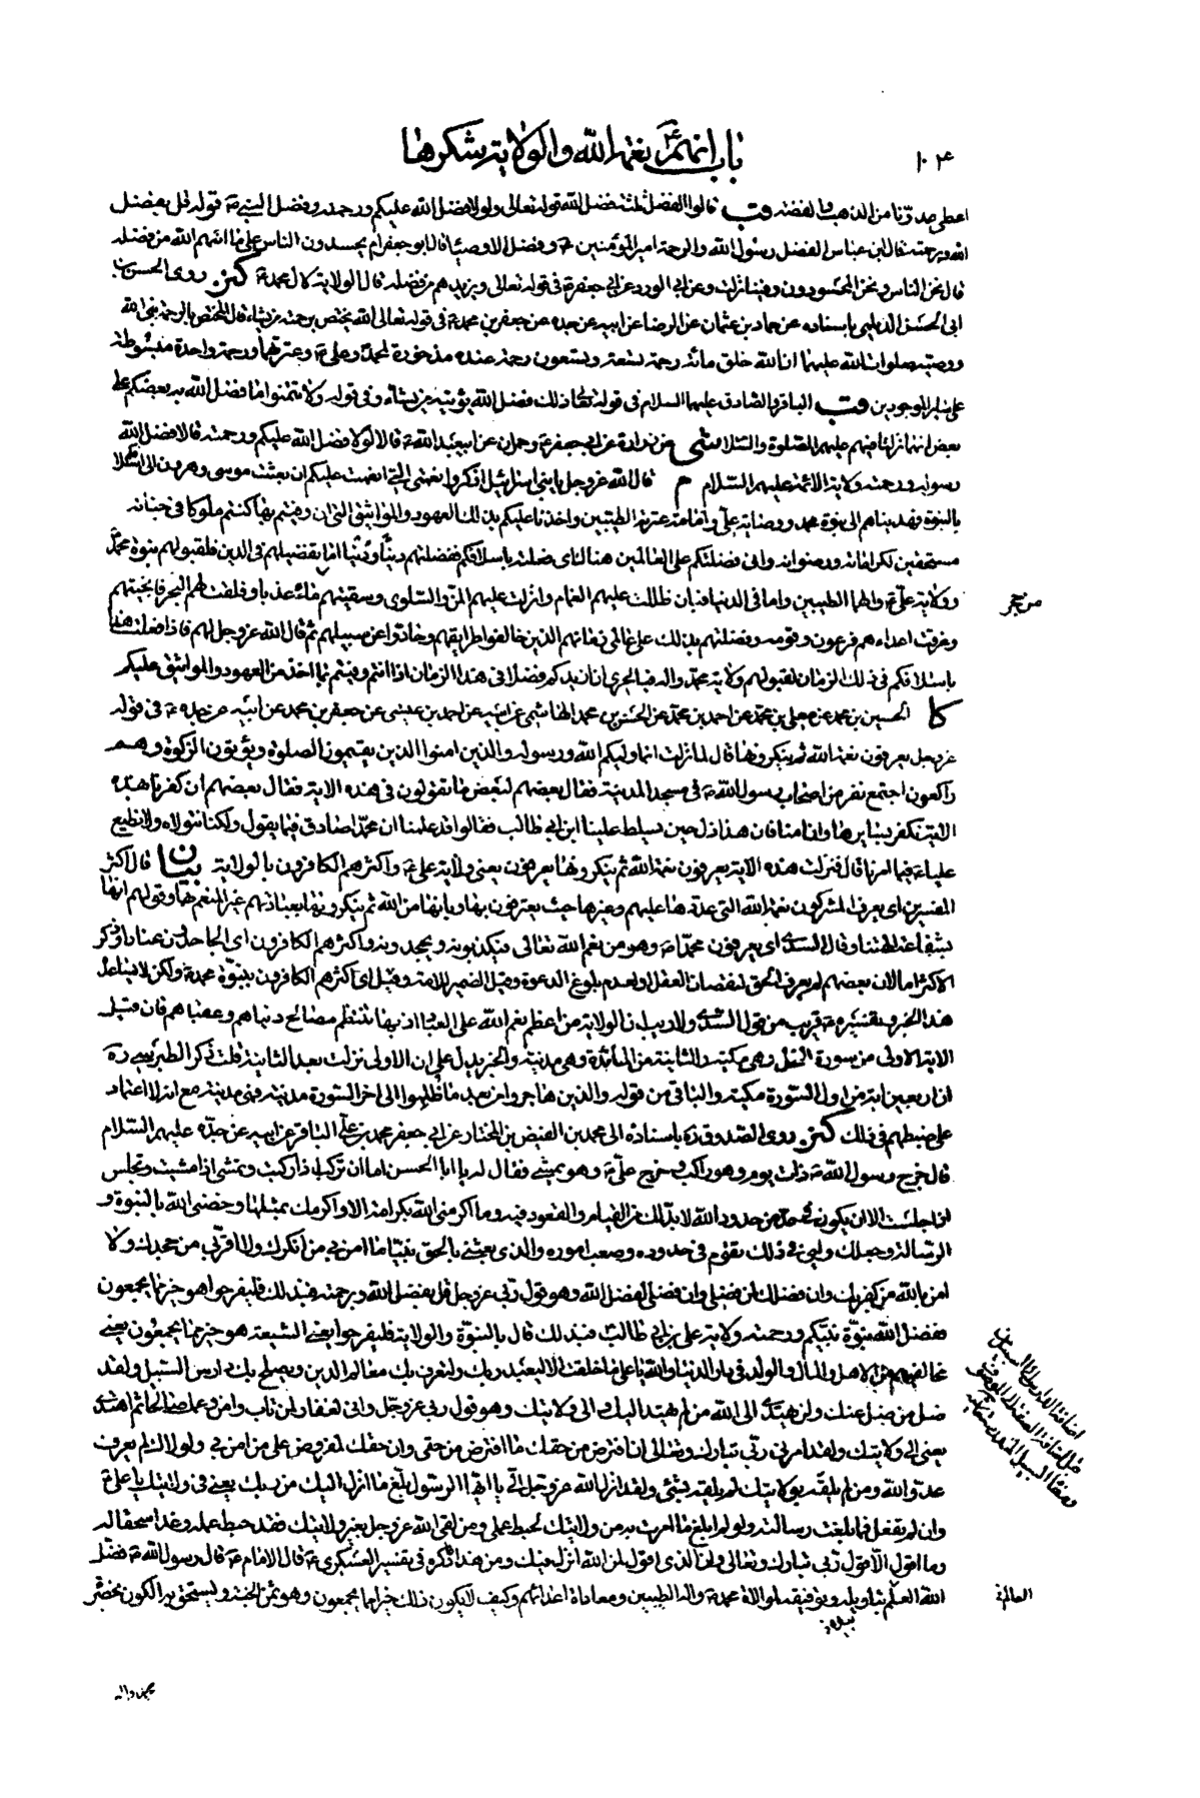 ١٠٤
باب انهم ع نعمة الله والولاية شكرها
اعطى صدوقنا من الذهب والفضة قب قالوا الفضل ثلثة فضل الله قوله تعالى ولولا فضل الله عليكم ورحمته وفضل النبي ص قوله قل بفضل
الله وبرحمته قال ابن عباس الفضل رسول الله والرحمة امير المؤمنين ع وفضل الاوصياء قال ابو جعفر ام يحسدون الناس على ما اتيهم الله من فضله
قال نحن الناس ونحن المحسودون وفينا نزلت وعن ابي الورد عن ابي جعفر ع في قوله تعالى ويزيدهم من فضله قال الولاية لال محمد ع كنز روى الحسن بن
ابي الحسن الديلمي باسناده عن حماد بن عثمان عن الرضا عن ابيه عن جده عن جعفر بن محمد ع في قوله تعالى الله يختص برحمته من يشاء قال المختص بالرحمة نبي الله
ووصيه صلوات الله عليهما ان الله خلق مائة رحمة تسعة وتسعون رحمة عنده مذخورة لمحمد وعلي ع وعترتهما ورحمة واحدة مبسوطة
على سائر الموجودين قب الباقر والصادق عليهما السلام في قوله تعالى ذلك فضل الله يؤتيه من يشاء وفي قوله ولا تتمنوا ما فضل الله به بعضكم على
بعض انهما نزلتا فيهم عليهم الصلوة والسلام شى عن زرارة عن ابي جعفر ع وحمران عن ابيعبد الله ع قالا لولا فضل الله عليكم ورحمته قالا فضل الله
رسوله ورحمته ولاية الائمة عليهم السلام م قال الله عز وجل يا بني اسرائيل اذكروا نعمتي التي انعمت عليكم ان بعثت موسى وهرون الى اسلافكم
بالنبوة فهديناهم الى نبوة محمد ووصاية علي وامامة عترته الطيبين واخذنا عليكم بذلك العهود والمواثيق التي ان وفيتم بها كنتم ملوكا في جنانه
مستحقين لكراماته ورضوانه واني فضلتكم على العالمين هناك اي فضلته باسلافكم فضلتهم دينا ودنيا اما تفضيلهم في الدين فلقبولهم نبوة محمد
وولاية علي ع والهما الطيبين واما في الدنيا فبان ظللت عليهم الغمام وانزلت عليهم المن والسلوى وسقيتهم ماء عذبا وفلقت لهم البحر فانجيتهم
من حجر
وغرقت اعداءهم فرعون وقومه وفضلتهم بذلك على عالمي زمانهم الذين خالفوا طرايقهم وحادوا عن سبيلهم ثم قال الله عز وجل لهم فاذا فعلت هذا
باسلافكم في ذلك الزمان لقبولهم ولاية محمد واله فبالحري ان ازيدكم فضلا في هذا الزمان اذا انتم وفيتم بما اخذ من العهود والمواثيق عليكم
كا الحسين بن محمد عن معلى بن محمد عن احمد بن محمد عن الحسن بن محمد الهاشمي عن ابيه عن احمد بن عيسى عن جعفر بن محمد عن ابيه عن جده ع في قوله
عز وجل يعرفون نعمة الله ثم ينكرونها قال لما نزلت انما وليكم الله ورسوله والذين امنوا الذين يقيمون الصلوة ويؤتون الزكوة وهم
راكعون اجتمع نفر من اصحاب رسول الله ص في مسجد المدينة فقال بعضهم لبعض ما تقولون في هذه الاية فقال بعضهم ان كفرنا بهذه
الاية نكفر بسايرها وان امنا فان هذا ذل حين يسلط علينا ابن ابي طالب فقالوا قد علمنا ان محمدا صادق فيما يقول ولكنا نتولاه ولا نطيع
عليا ع فيما امرنا قال فنزلت هذه الاية يعرفون نعمة الله ثم ينكرونها يعرفون يعني ولاية علي ع واكثرهم الكافرون بالولاية بيان قال اكثر
المفسرين اي يعرف المشركون نعمة الله التي عددها عليهم وغيرها حيث يعترفون بها وبانها من الله ثم ينكرونها بعبادتهم غير المنعم بها وقولهم انها
بشفاعة الهتنا وقال السدي اي يعرفون محمدا ص وهو من نعم الله تعالى فيكذبونه ويجحدونه واكثرهم الكافرون اي الجاحدون عنادا وذكر
الاكثر اما لان بعضهم لم يعرف الحق لنقصان العقل او لعدم بلوغ الدعوة وقيل الضمير للامة وقيل اي اكثرهم الكافرون بنبوة محمد ص ولكن لا يساعد
هذا الخبر وتفسيره ع قريب من قول السدي ولا ريب ان الولاية من اعظم نعم الله على العباد اذ بها تنتظم مصالح دنياهم وعقباهم فان قيل
الاية الاولى من سورة النحل وهي مكية والثانية من المائدة وهي مدنية والخبر يدل على ان الاولى نزلت بعد الثانية قلت ذكر الطبرسي ره
ان اربعين اية من اول السورة مكية والباقي من قوله والذين هاجروا من بعد ما ظلموا الى اخر السورة مدنية فهي مدنية مع انه لا اعتماد
على ضبطهم في ذلك كنز روى الصدوق ره باسناده الى محمد بن الفيض بن المختار عن ابي جعفر محمد بن علي الباقر عن ابيه عن جده عليهم السلام
قال خرج رسول الله ص ذات يوم وهو راكب وخرج علي ع وهو يمشي فقال له يا ابا الحسن اما ان تركب اذا ركبت وتمشي اذا مشيت وتجلس
اذا جلست الا ان يكون في حد من حدود الله لا بد لك من القيام والقعود فيه وما اكرمني الله بكرامة الا واكرمك بمثلها وخصني الله بالنبوة و
الرسالة وجعلك وليي في ذلك تقوم في حدوده وصعب اموره والذي بعثني بالحق نبيا ما امن بي من انكرك ولا اقر بي من جحدك ولا
امن بالله من كفر بك وان فضلك لمن فضلي وان فضلي لفضل الله وهو قول ربي عز وجل قل بفضل الله وبرحمته فبذلك فليفرحوا هو خير مما يجمعون
ففضل الله نبوة نبيكم ورحمته ولاية علي بن ابي طالب فبذلك قال بالنبوة والولاية فليفرحوا يعني الشيعة هو خير مما يجمعون يعني
مخالفيهم من الاهل والمال والولد في دار الدنيا والله يا علي ما خلقت الا ليعبد ربك وليعرف بك معالم الدين ويصلح بك دارس السبيل ولقد
ضل من ضل عنك ولن يهتدي الى الله من لم يهتد اليك والى ولايتك وهو قول ربي عز وجل واني لغفار لمن تاب وامن وعمل صالحا ثم اهتدى
يعني الى ولايتك ولقد امرني ربي تبارك وتعالى ان افترض من حقك ما افترض من حقي وان حقك لمفروض على من امن بي ولولاك لم يعرف
عدو الله ومن لم يلقه بولايتك لم يلقه بشيء ولقد انزل الله عز وجل الي يا ايها الرسول بلغ ما انزل اليك من ربك يعني في ولايتك يا علي ع
وان لم تفعل فما بلغت رسالته ولو لم ابلغ ما امرت به من ولايتك لحبط عملي ومن لقي الله عز وجل بغير ولايتك فقد حبط عمله وغدا سحقا له
وما اقول الا قول ربي تبارك وتعالى وان الذي اقول لمن الله انزله فيك ومن هذا ذكره في تفسير العسكري ع قال الامام ع قال رسول الله ص فضل
الله العلم بتاويله وتوفيقه لموالاة محمد ص واله الطيبين ومعاداة اعدائهم وكيف لا يكون ذلك خيرا مما يجمعون وهو ثمن الجنة ويستحق به الكون بحضرة
العالم
محمد واله